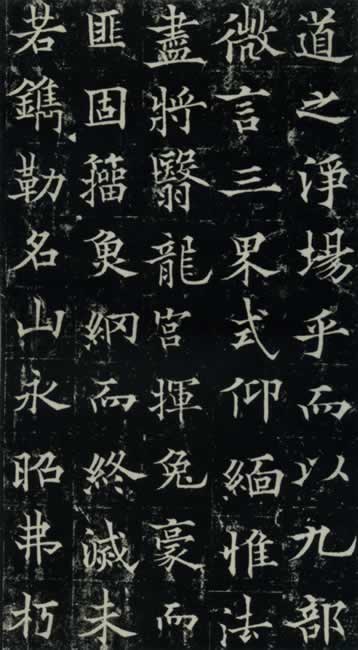 道之淨場乎而以九部
微言三界式仰緬惟法
盡將翳龍宮揮兔豪而
匪固籀魚網而終滅未
若鐫勒名山永昭弗朽